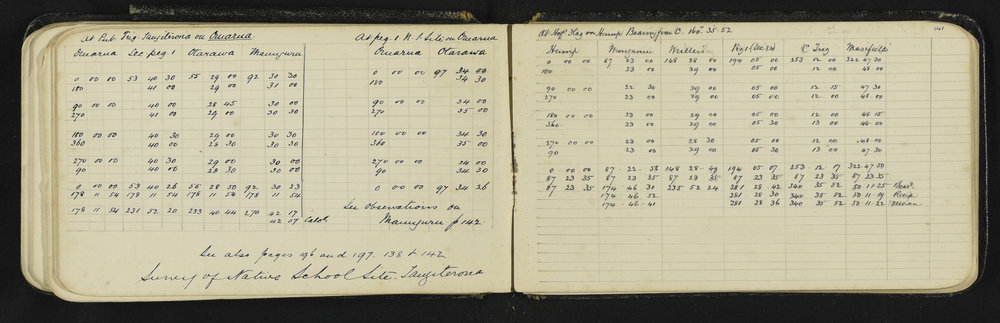 At Pub. Trig. Tangiteroria on Ouarua
Ouarua See peg 1 Otarawa Maunguru
0 00 00 53 40 30 55 29 00 92 30 30
180 41 00 29 00 31 00
90 00 00 40 00 28 45 30 00
270 41 00 29 00 30 30
180 00 00 40 30 29 00 30 30
360 40 00 28 30 30 30
270 00 40 30 29 00 30 00
90 40 00 28 30 30 00
0 00 00 53 40 26 55 28 50 92 30 23
178 11 54 178 11 54 178 11 54 178 11 54
178 11 54 231 52 20 233 40 44 270 42 17
42 07 Calcd
At peg 1 N.S. Site on Ouarua
Ouarua Otarawa
0 00 00 97 34 00
180 34 30
90 00 00 34 00
270 35 00
180 00 00 34 30
360 35 00
270 00 00 34 00
90 34 30
0 00 00 97 34 26
See Observations on
Maunguru p 142
See also pages 196 and 197. 138 & 142
Survey of Native School Site. Tangiteroria
141
At Hof Flag on Hump Bearing from O. 160° 35-52
Hump Monganui Miller's C Trig Masefield's
0 00 00 87 23 00 148 28 00 194 05 00 253 12 00 322 47 30
180 23 00 29 00 05 00 12 00 48 00
90 00 00 22 30 29 00 05 00 12 15 47 30
270 23 00 29 00 05 00 12 00 48 00
180 00 00 23 00 29 00 05 00 12 00 48 15
360 23 00 29 00 05 30 13 00 48 00
270 00 00 23 00 28 30 05 00 12 00 48 00
90 23 00 29 00 05 30 13 00 47 30
0 00 00 87 22 58 148 28 49 194 05 07 253 12 17 322 47 50
87 23 35 87 23 35 87 23 35 87 23 35 87 23 35 87 23 35
87 23 35 174 46 31 235 52 24 281 28 42 340 35 52 50 11 25 Obsd
174 46 52 281 28 30 340 35 52 50 11 19 Recip
174 46 41 281 28 36 340 35 52 50 11 22 Mean